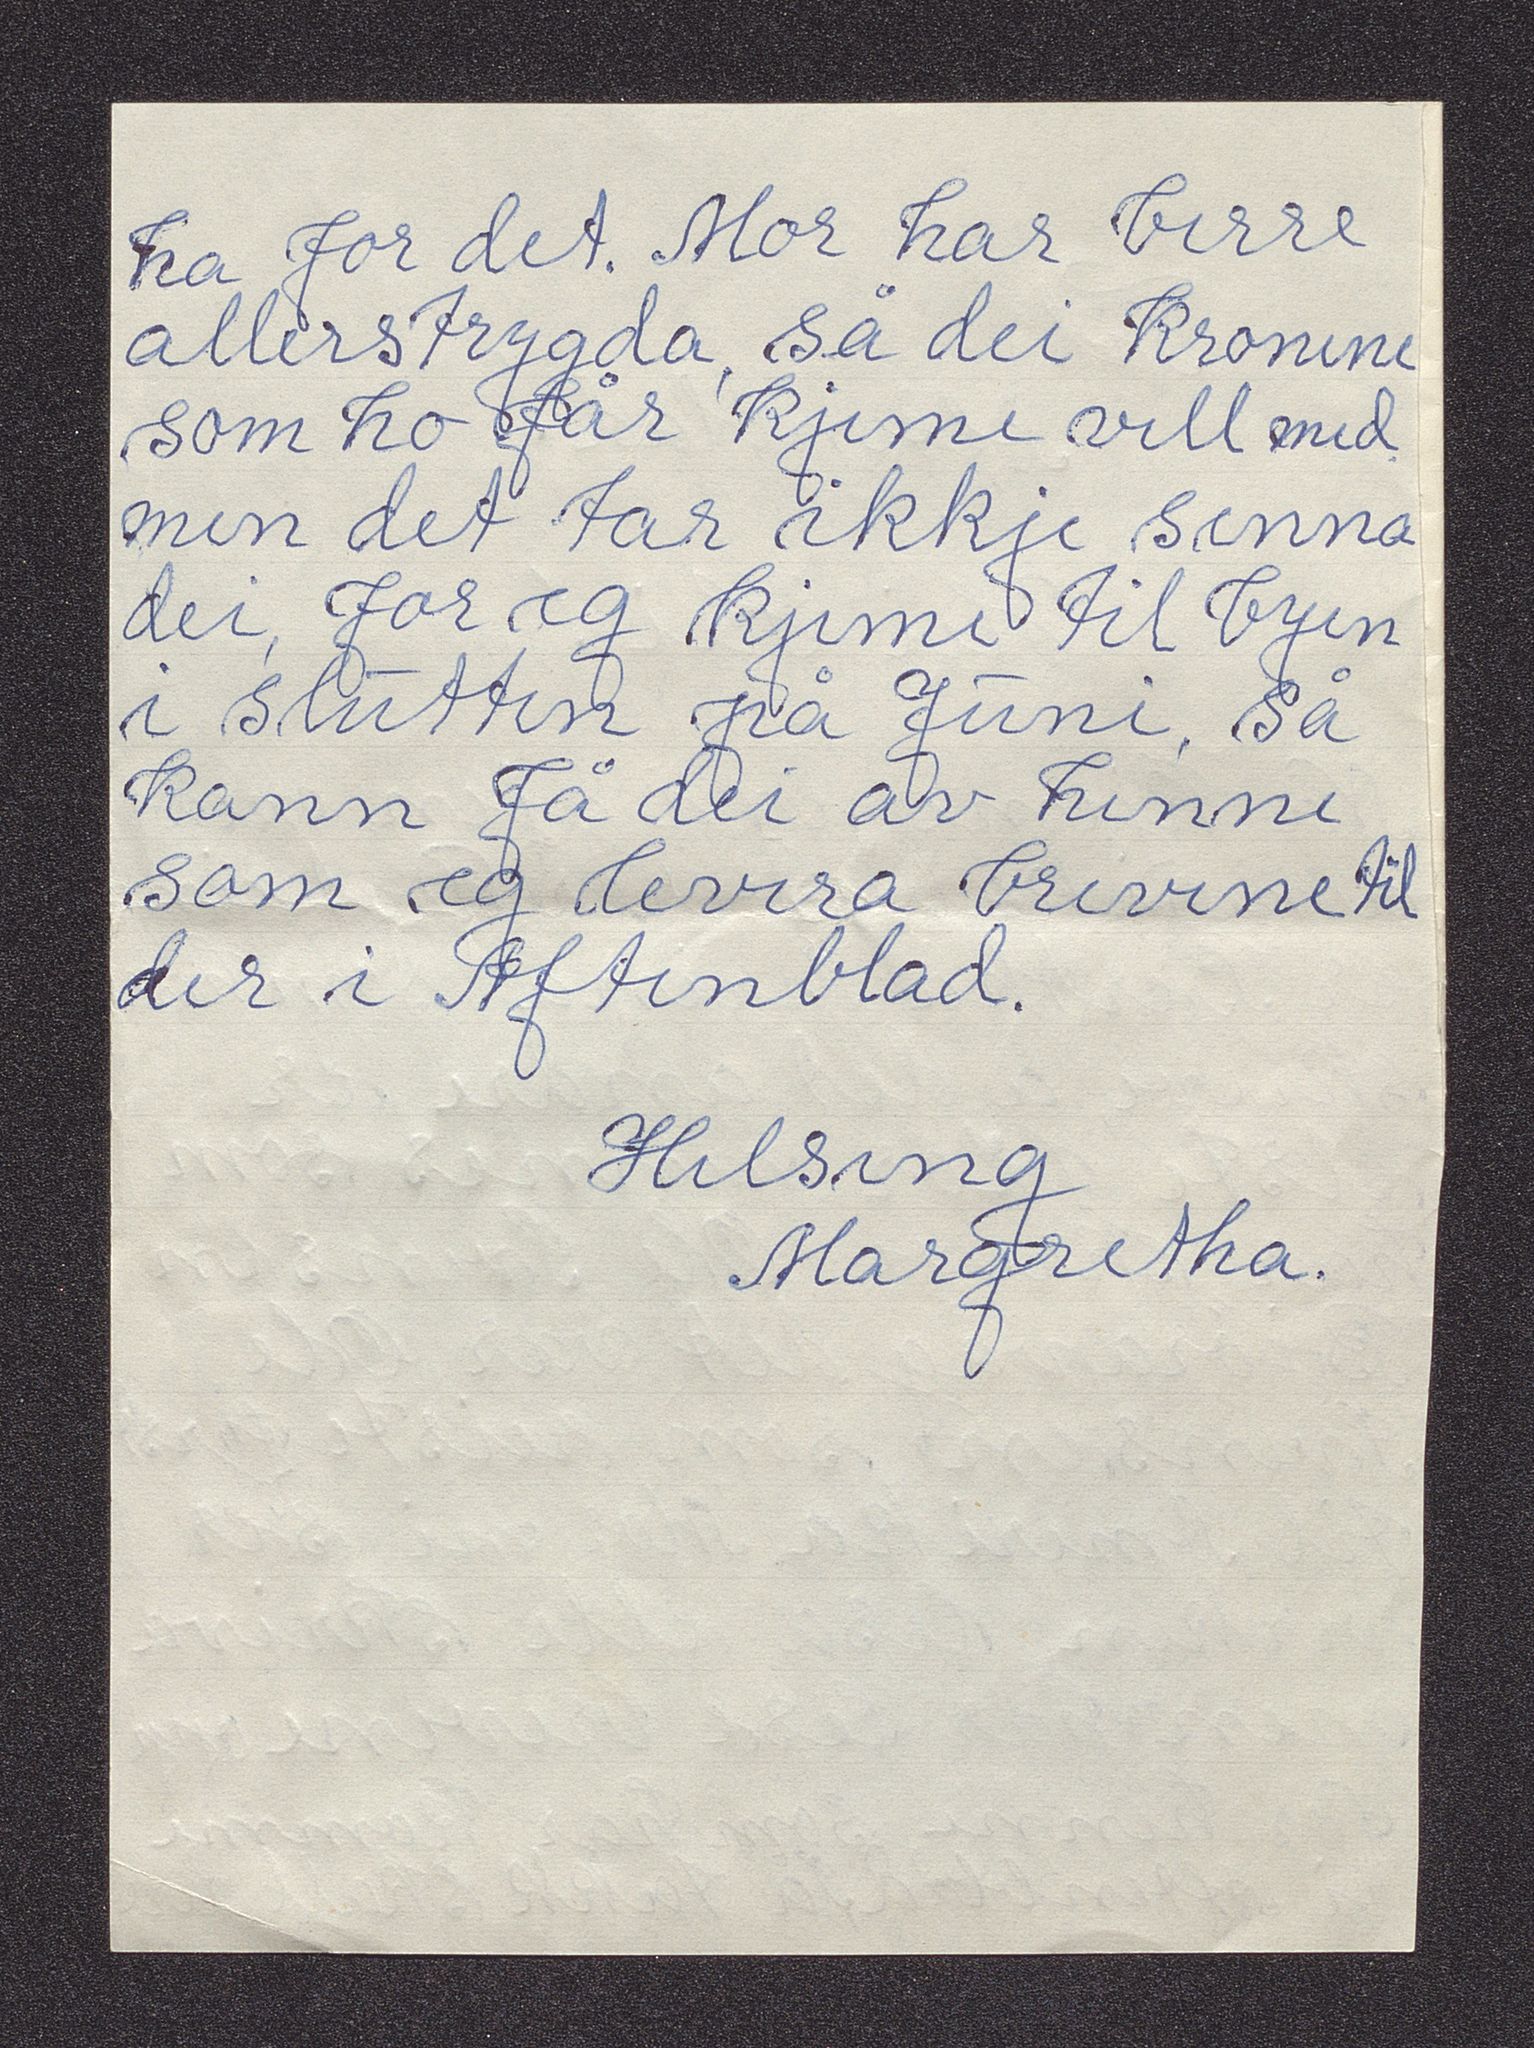 ha for det. Mor har berre
allerstrygda, så dei kronene
som ho får kjeme vell med.
men det tar ikkje senna
dei, for eg kjeme til byen
i slutten på Juni, så
kann få dei av henne
som eg levera brevene til
der i Aftenblad.
Helseng
Margretha.